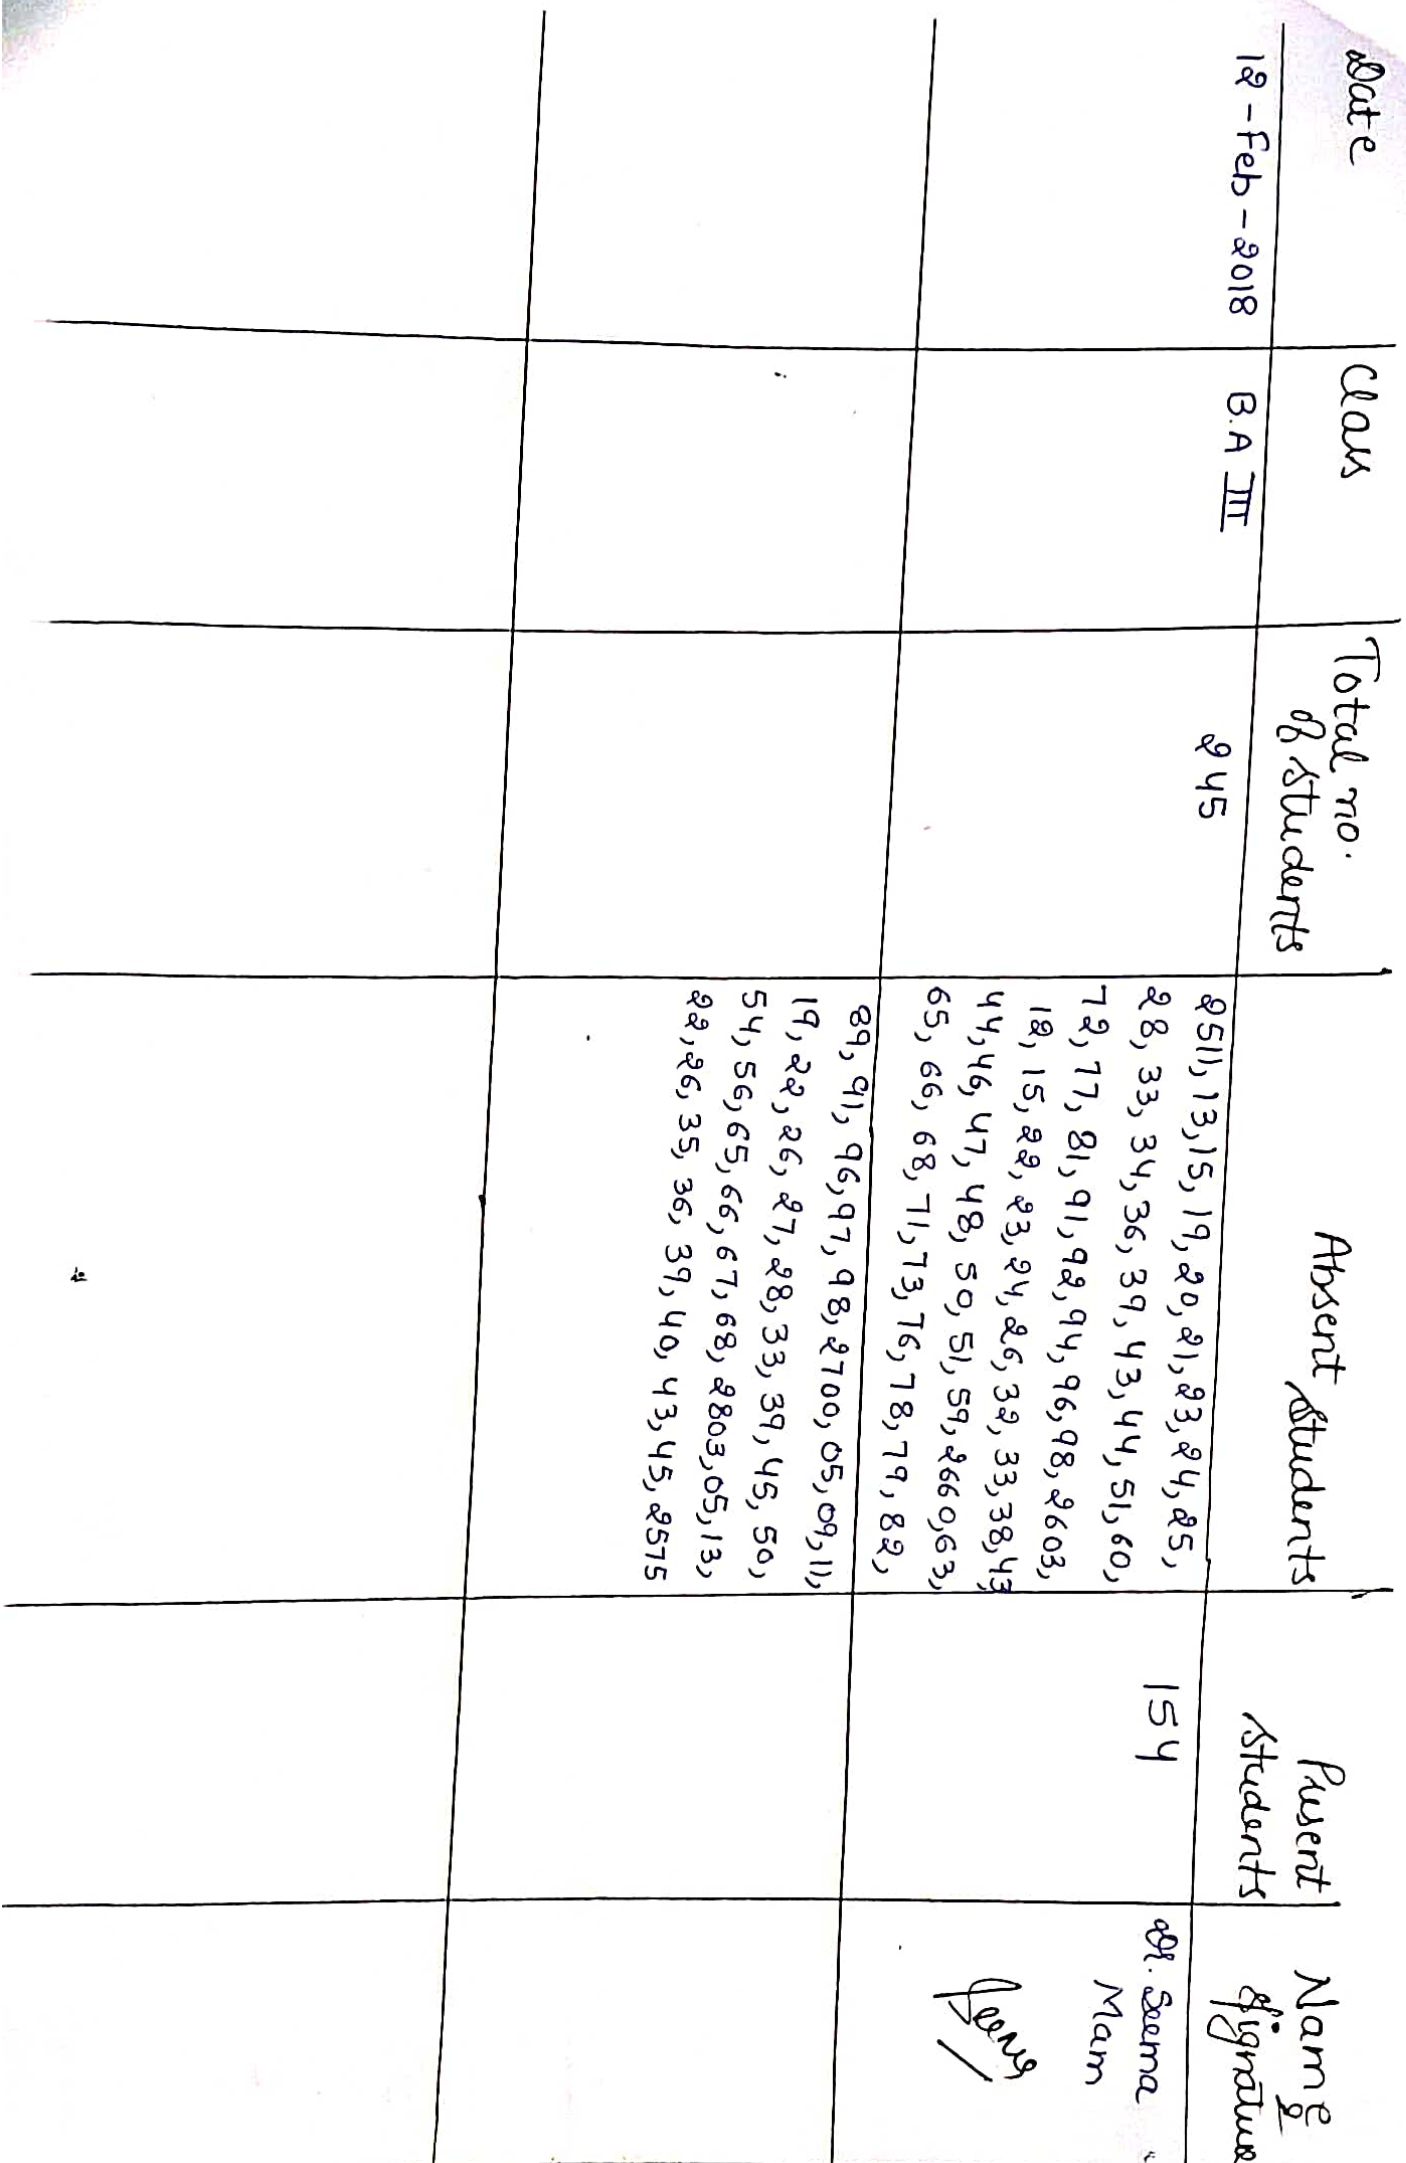 Date Class Total no. of students Absent students Present students Name & Signature
12-Feb-2018 B.A III 245 2511, 13, 15, 19, 20, 21, 23, 24, 25, 154 Dr. Seema
28, 33, 34, 36, 39, 43, 44, 51, 60, Mam
72, 77, 81, 91, 92, 94, 96, 98, 2603,
12, 15, 22, 23, 24, 26, 32, 33, 38, 43,
44, 46, 47, 48, 50, 51, 59, 2660, 63,
65, 66, 68, 71, 73, 76, 78, 79, 82,
89, 91, 96, 97, 98, 2700, 05, 09, 11,
19, 22, 26, 27, 28, 33, 39, 45, 50,
54, 56, 65, 66, 67, 68, 2803, 05, 13,
22, 26, 35, 36, 39, 40, 43, 45, 2575